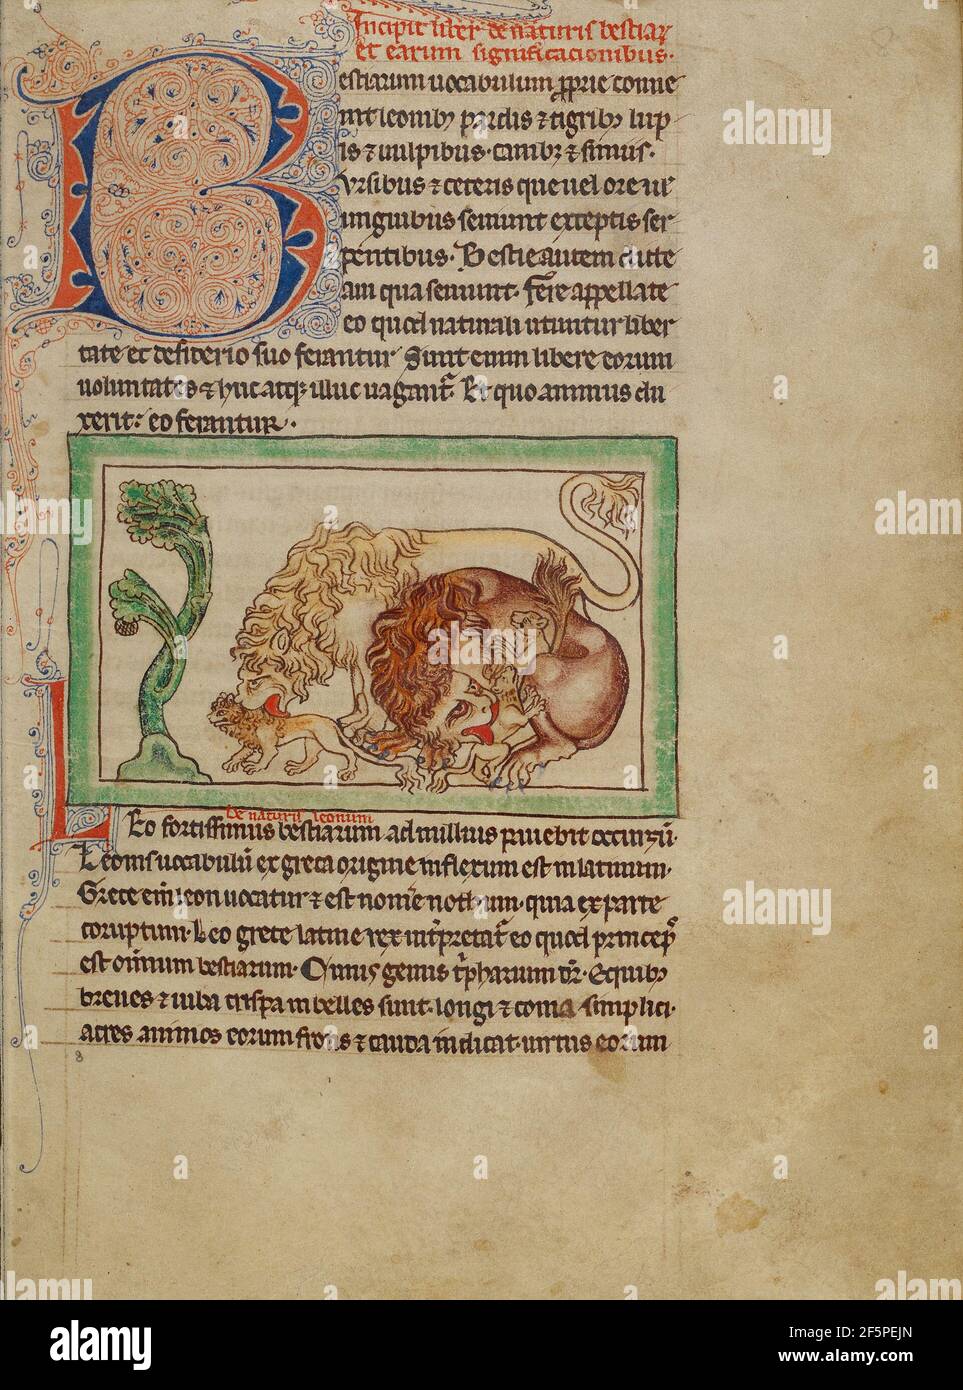 Incipit liber de naturis bestiaꝝ
et earum significacionibus.
Bestiarum uocabulum ꝓprie conue
nit leonibꝫ pardis ⁊ tigribꝫ lup
is ⁊ uulpibus. canibꝫ ⁊ simiis.
Vrsibus ⁊ ceteris que uel ore uel
unguibus seuiunt exceptis ser
pentibus. Bestie autem dicte
am qua seuiunt. fere appellate
eo quod naturali utuntur liber
tate et desiderio suo ferantur Sunt enim libere eorum
uoluntates ⁊ huc atqꝫ illuc uagant᷑. Et quo animus du
xerit: eo ferantur.
De naturis leonum
Leo fortissimus bestiarum ad nullius pauebit occursū.
Leonis uocabulū ex greca origine inflexum est in latinum.
Grece em̄ leon uocatur ⁊ est nom̄e nothum. quia ex parte
coruptum. Leo grece latine rex int̄pretat᷑ eo quod princeps
est om̄ium bestiarum.
breues ⁊ iuba crispa inbelles sunt. longi ⁊ coma simplici.
acres animos eorum frons ⁊ cauda indicat. uirtus eorum
8
alamy
Image ID: 2F5PEJN
www.alamy.com